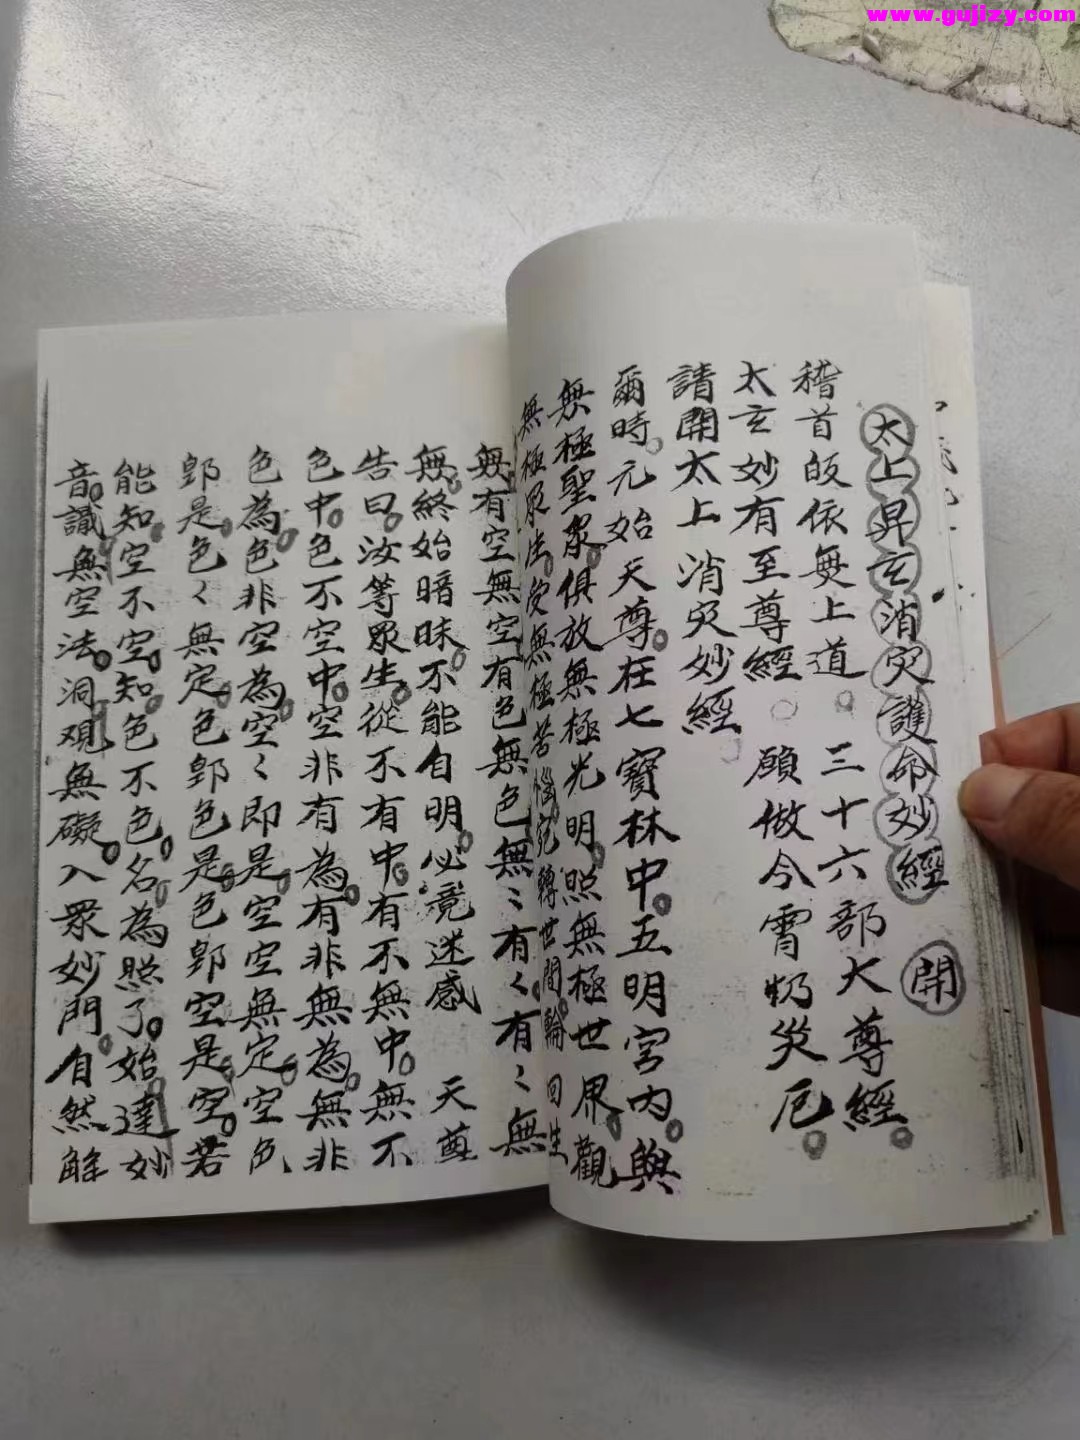 www.gujizy.com
太上昇玄消灾護命妙經 開
稽首皈依無上道 三十六部大尊經
太玄妙有至尊經 願做今霄灾厄
請開太上消灾妙經
爾時元始天尊在七寶林中五明宮內與
無極聖衆俱放無極光明照無極世界觀
無極眾生受無極苦惱宛轉世間輪回生
無有空無空有色無色無〻有〻有〻無
無終始暗昧不能自明必竟迷惑 天尊
告曰汝等眾生從不有中有不無中無不
色中色不空中空非有為有非無為無非
色為色非空為空〻即是空空無定空色
即是色〻無定色即色是色即空是空若
能知空不空知色不色名為照了始達妙
音識無空法洞觀無礙入眾妙門自然解